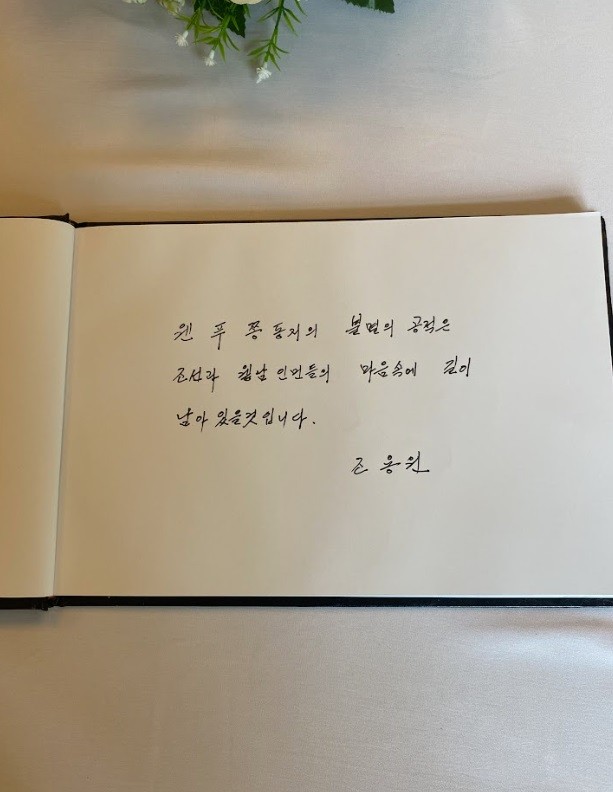 웬 푸 쫑 동지의 불멸의 공적은
조선과 웰남 인민들의 마음속에 길이
남아 있을것입니다.
조 용원